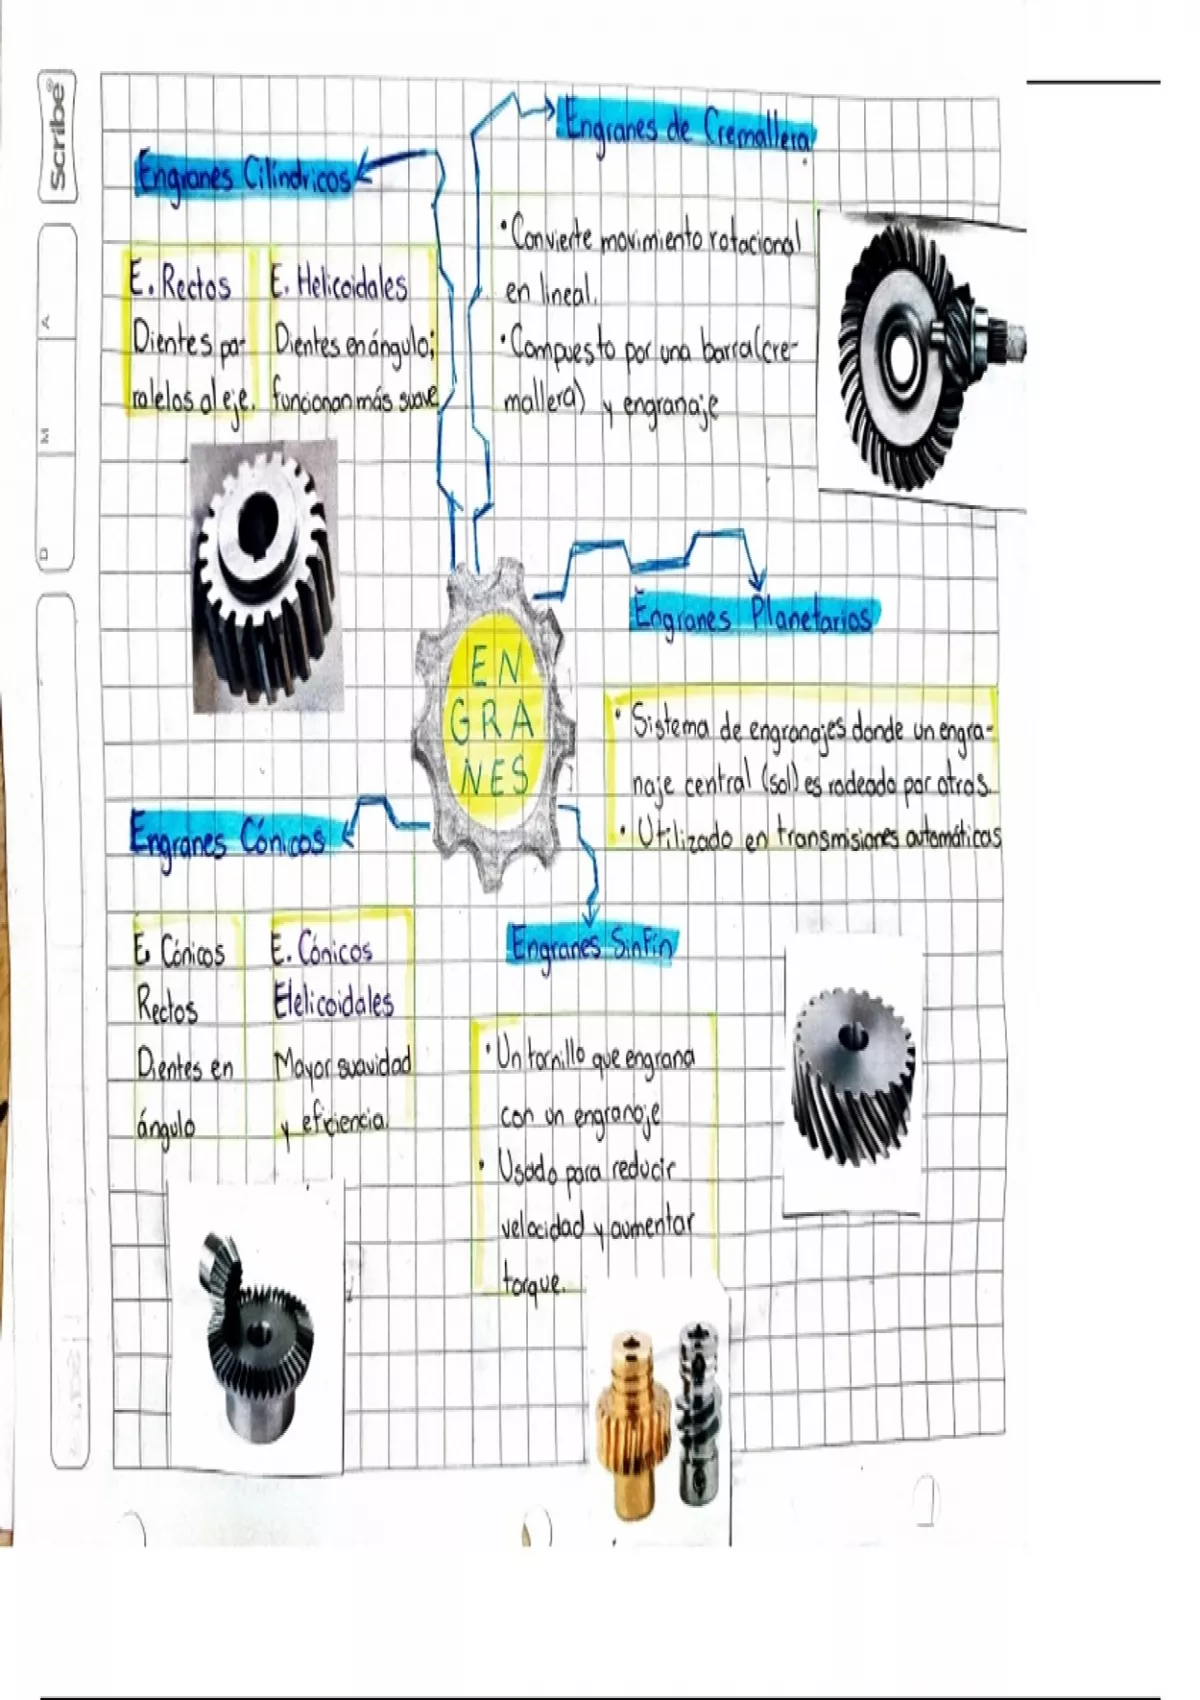 Scribe®
D M A
Engranes de Cremallera
• Convierte movimiento rotacional
en lineal.
• Compuesto por una barra(cre-
mallera) y engranaje
Engranes Cilíndricos
E. Rectos
Dientes pa-
ralelos al eje.
E. Helicoidales
Dientes en ángulo;
funcionan más suave
EN
GRA
NES
Engranes Planetarios
• Sistema de engranajes donde un engra-
naje central (sol) es rodeado por otros.
• Utilizado en transmisiones automáticas
Engranes Cónicos
E. Cónicos
Rectos
Dientes en
ángulo
E. Cónicos
Helicoidales
Mayor suavidad
y eficiencia.
Engranes SinFín
• Un tornillo que engrana
con un engranaje
• Usado para reducir
velocidad y aumentar
torque.